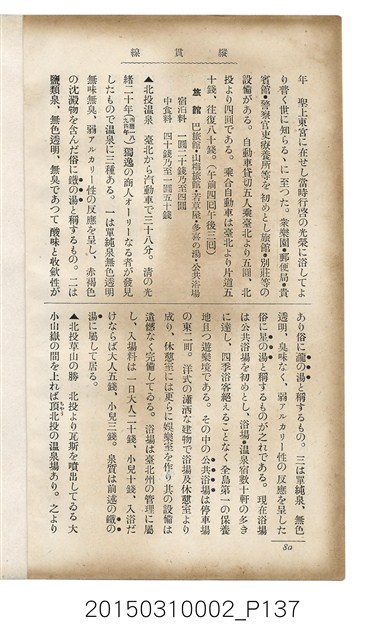 縱貫線
年 聖上東宮に在せし當時行啓の光榮に浴してよ
り普く世に知らるゝに至つた。衆樂園・郵便局・貴
賓館・警察官吏療養所等を初めとし旅館・別莊等の
設備がある。自動車貸切五人乘臺北より五圓、北
投より四圓である。乘合自動車は臺北より片道五
十錢、往復八十錢。(午前四回午後三回)
旅館 巴旅館・山梅旅館・若草屋・多喜の湯・公共浴場
宿泊料 一圓二十錢乃至四圓
中食料 四十錢乃至一圓五十錢
▲北投溫泉 臺北から汽動車で三十八分。淸の光
緒二十年獨逸の商人オーリーなる者が發見
したもので溫泉に三種ある。一は單純泉無色透明
無味無臭、弱アルカリー性の反應を呈し、赤褐色
の沈澱物を含んだ俗に鐵の湯と稱するもの。二は
鹽類泉、無色透明、無臭であつて酸味と收斂性が
あり俗に瀧の湯と稱するもの。三は單純泉、無色
透明、臭味なく、弱アルカリー性の反應を呈した
俗に星の湯と稱するものが之れである。現在浴場
は公共浴場を初めとし、浴場・溫泉宿數十軒の多き
に達し、四季浴客絕えることなく、全島第一の保養
地且つ遊樂境である。その中の公共浴場は停車場
の東二町。洋式の瀟洒な建物で浴場及休憩室より
成り、休憩室には更らに娛樂室を作り其の設備は
遺憾なく完備してゐる。浴場は臺北州の管理に屬
し、入場料は一日大人二十錢、小兒十錢、入浴だ
けならば大人五錢、小兒三錢。泉質は前述の鐵の
湯に屬して居る。
▲北投草山の勝 北投より瓦斯を噴出してゐる大
小山嶽の間を上れば頂北投の溫泉場あり。之より
80
20150310002_P137